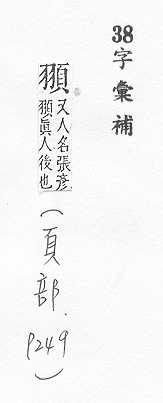 38字彙補
頨 又人名張彦
頨眞人後也
(頁部. P249)